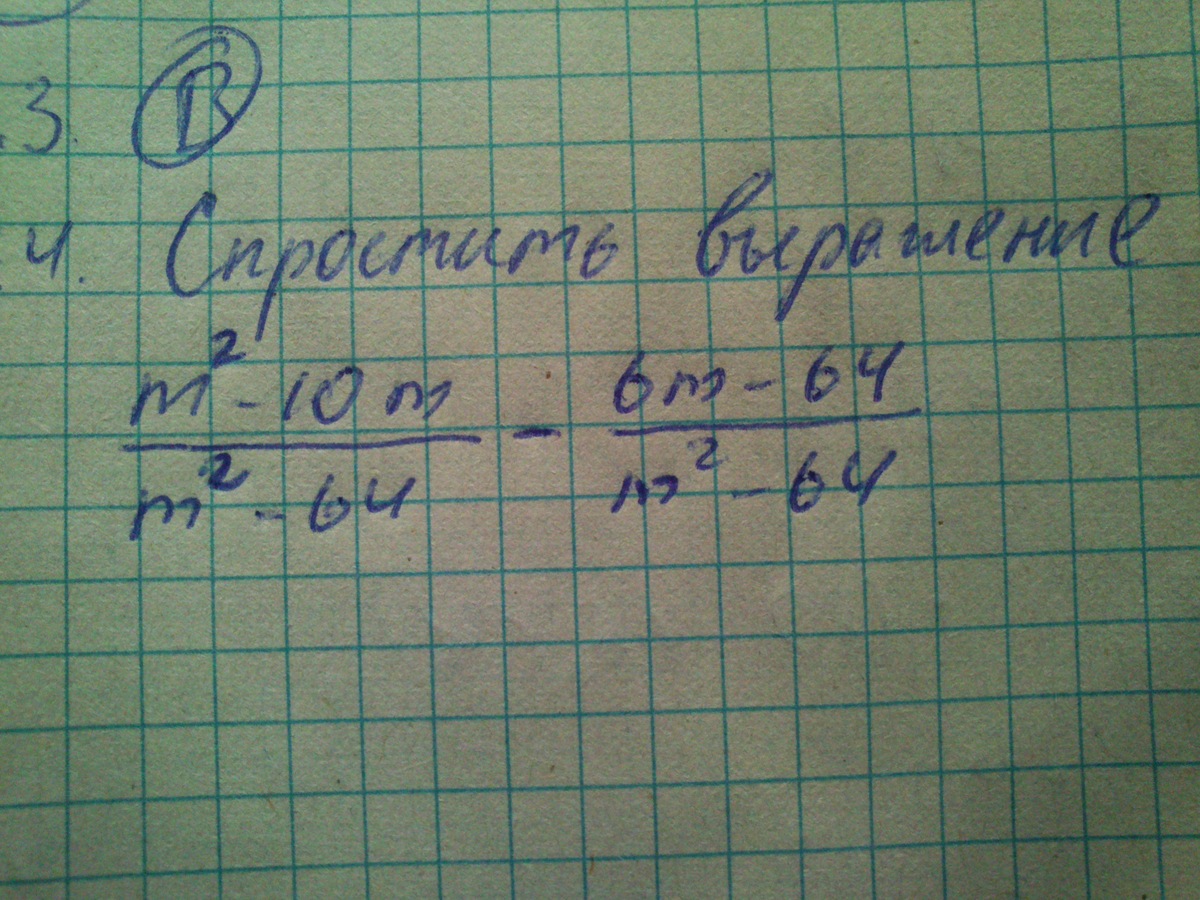 .3. В
.4. Спростить выражение
m² - 10m / m² - 64 - 6m - 64 / m² - 64